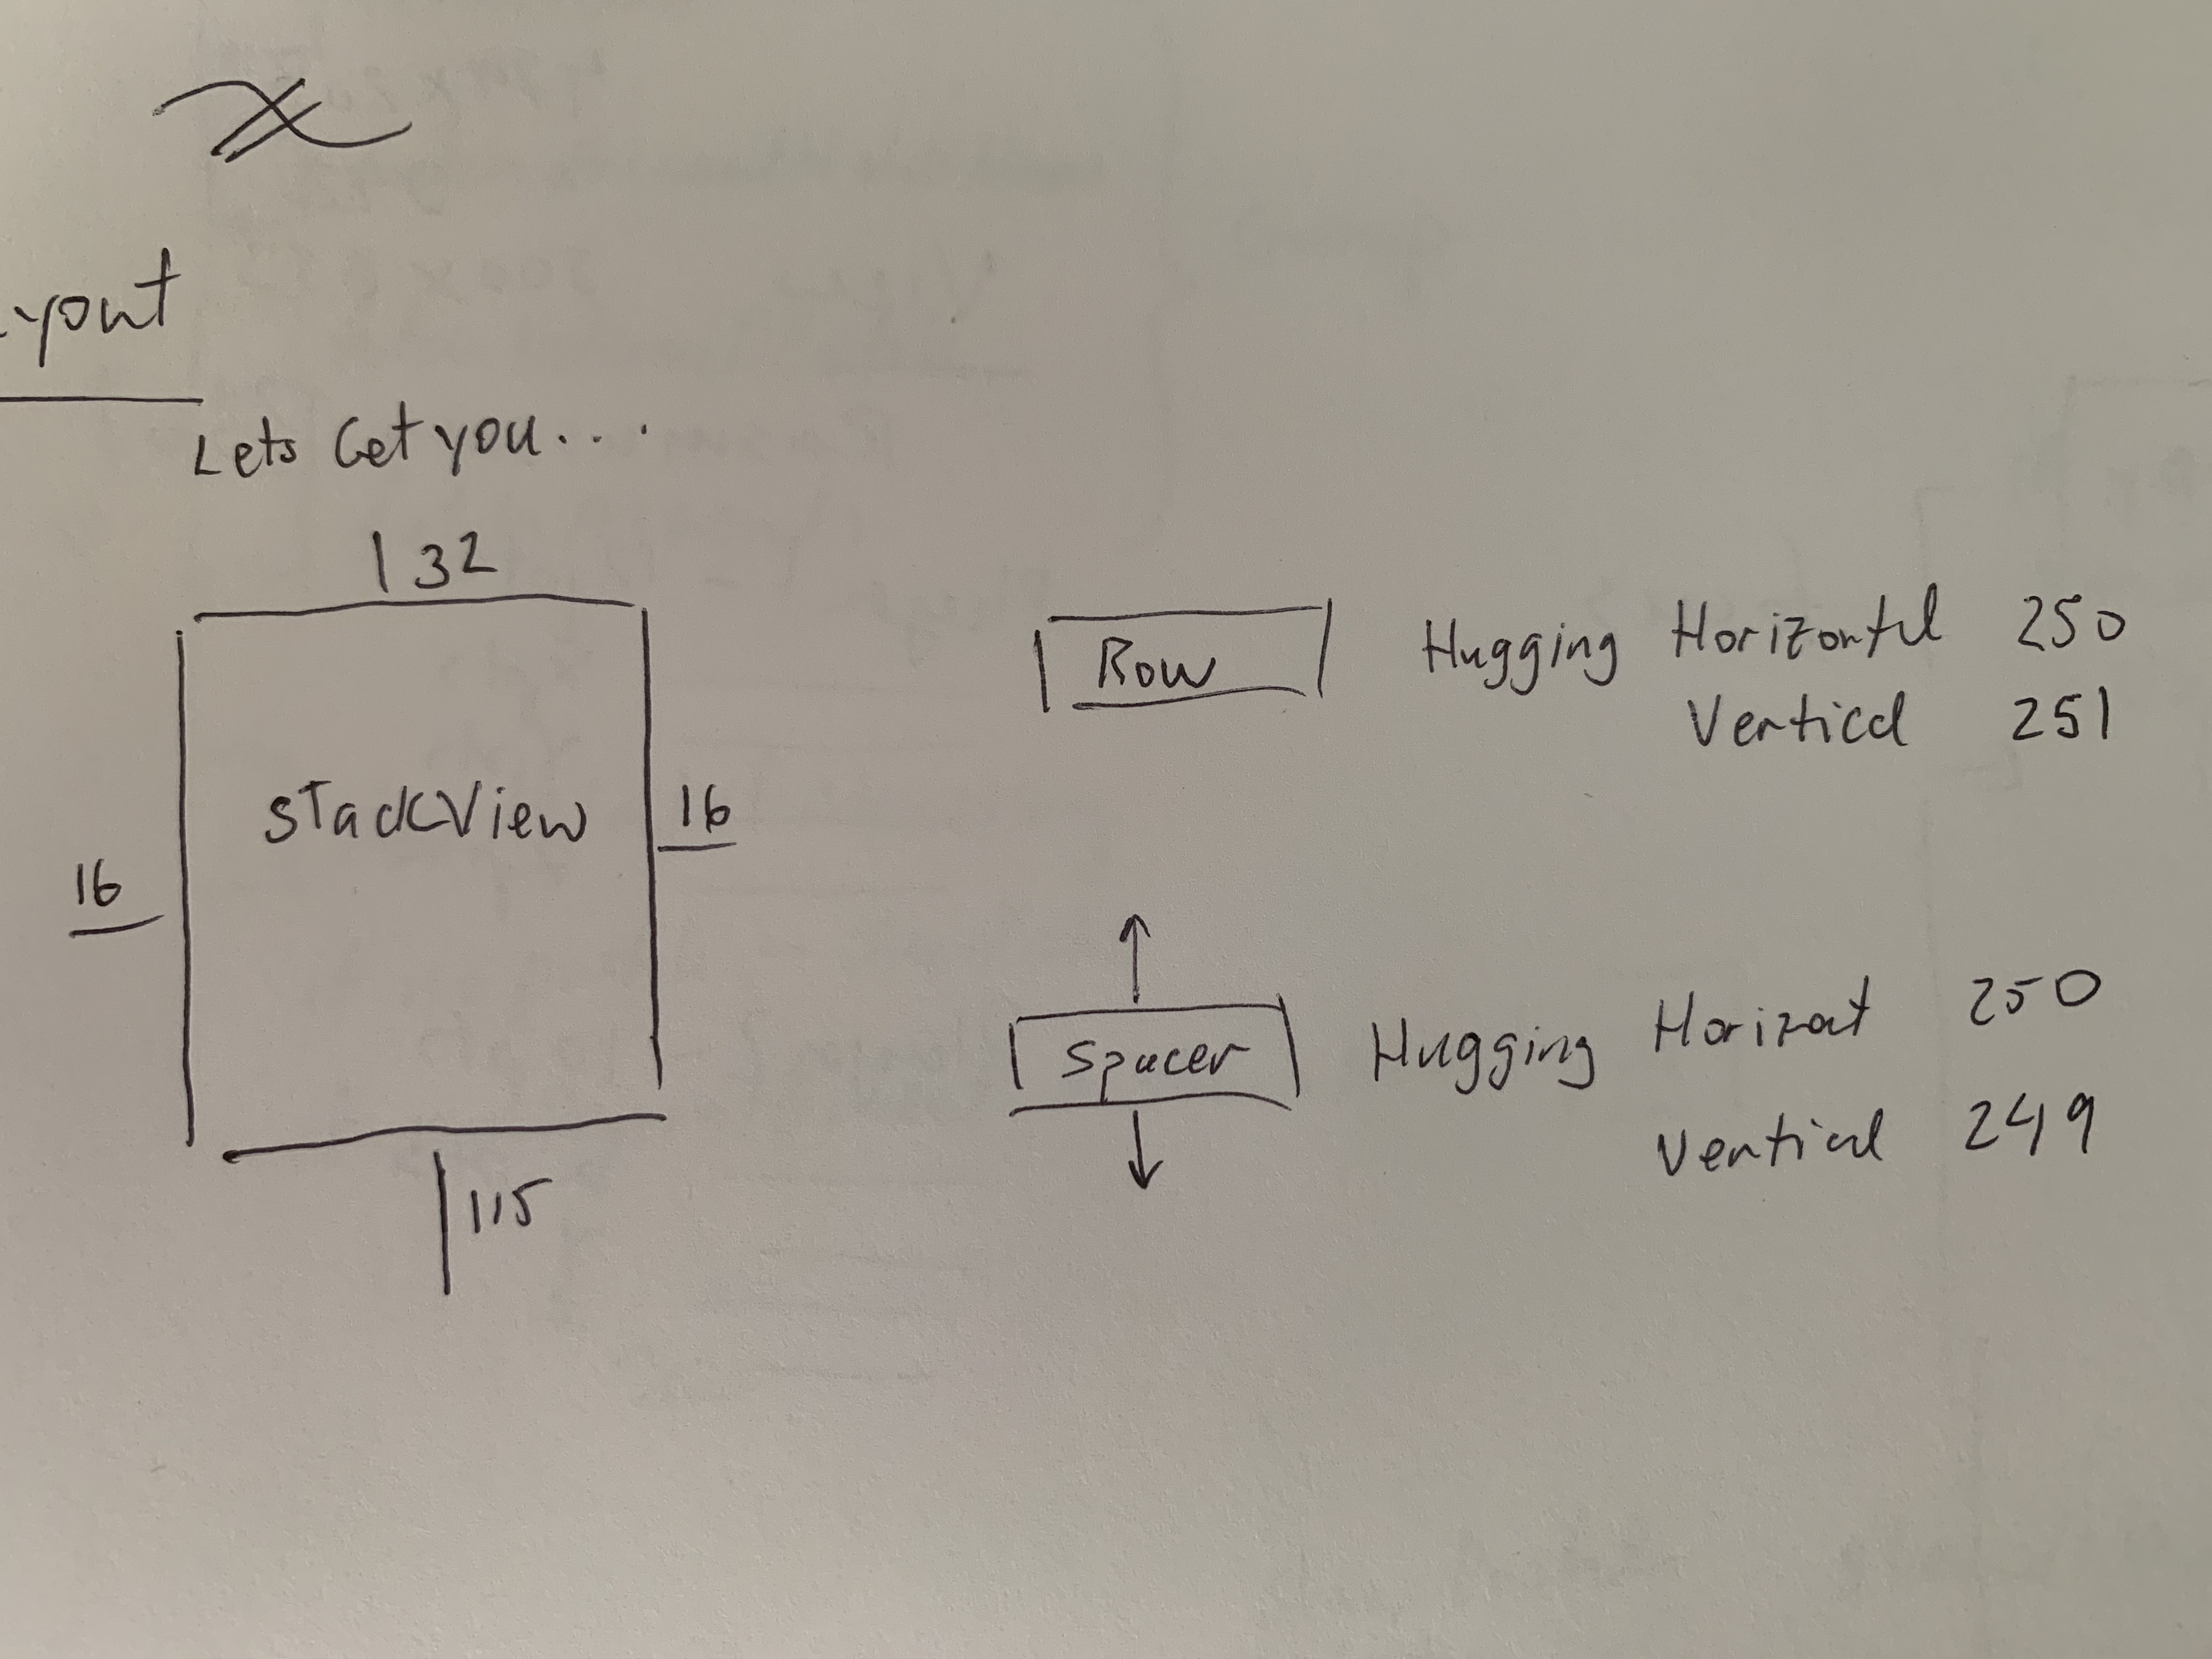 yout
Lets Get you...
32
stackView
16
16
115
Row
Hugging Horizontal 250
Vertical 251
Spacer
Hugging Horizont 250
Vertical 249